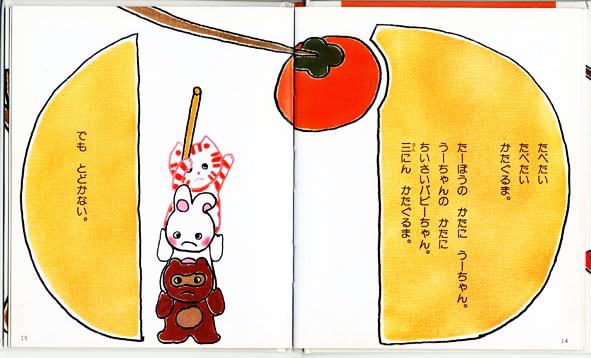 たべたい
たべたい
かたぐるま。
たーぼうの かたに うーちゃん。
うーちゃんの かたに
ちいさいパピーちゃん。
三にん かたぐるま。
でも とどかない。
14
15